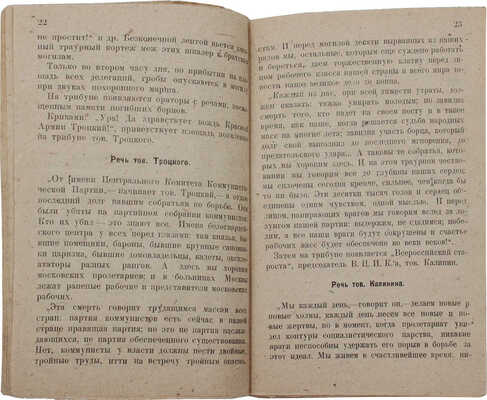 22
не простит!" и др. Безконечной лентой вьется
траурный кортеж меж этих шпалер к братским
могилам.
Только во втором часу дня, по прибытии на
щадь всех делегаций, гробы опускаются в могилу
при звуках похоронного марша.
На трибуне появляются ораторы с речами, посвя-
щенными памяти погибших борцов.
Криками? „Ура! Да здравствует вождь Красной
Армии Троцкий!", приветствует площадь появление
на трибуне тов. Троцкого.
Речь тов. Троцкого.
„От имени Центрального Комитета Коммунисти-
ческой Партии,— начинает тов. Троцкий,— я отдаю
последний долг павшим собратьям по борьбе. Они
были убиты на партийном собрании коммунистов.
Кто их убил — это знают все. Имена белогвардей-
ского центра у всех перед глазами: там князья,
помещики, бароны, бывшие крупные
ки царизма, бывшие домовладельцы, кадеты, эксплоа-
ататоры разных рангов. А здесь вы хороните
московских пролетариев; и в больницах Москвы
лежат раненые рабочие и представители московских
рабочих.
„Эта смерть говорит трудящимся массам всей
страны: партия коммунистов есть сейчас в нашей
стране правящая партия; но это не партия наслаж-
дающихся, не партия обеспеченного существования.
Нет, коммунисты у власти должны нести двойные,
тройные труды, итти на встречу тройным опасно-
стям. И перед могилой десяти вырванных из наших
рядов мы, остальные, которым еще суждено работать
и бороться, даем торжественную клятву перед ли-
цом рабочего класса нашей страны и всего мира про-
должать наше великое дело до конца.
„Каждый из нас, при всей тяжести утраты,
должен сказать: тяжко умирать молодым; но завидна
смерть того, кто падает на своем посту в в такое
время, как наше, когда решается судьба народных
масс на многие лета; завидна участь борца, который
долг свой выполнил до последнего мгновения, до
предательского удара... А таковы те собратья, кото-
рых мы хороним здесь. И на этом траурном шествии
говорим вы голосом и стенам и сердцем наших:
мы сплочены сегодня крепче, сильнее, чем когда бы
то ни было. Эти десятки тысяч голов и сердец объе-
динены одним чувством, одной мыслью. И перед
лицом напирающих врагов мы говорим вслед за лозун-
гом нашей партии: выдержим, не сдадимся; победим,
а все наши враги будут сокрушены и счастье
рабочих масс будет обеспечено во веки веков!".
Затем на трибуне является „Всероссийский ста-
роста", председатель В. Ц. И. К.'а, тов. Калинин.
Речь тов. Калинина.
„Мы каждый день,—говорит он,— делаем новые и
новые холмы, каждый день несем все новые и но-
вые жертвы, но в момент, когда пролетариат уви-
дел контуры социалистического царства, никакие
враги неспособны удержать его порыв в борьбе за
этот идеал. Мы живем в счастливейшее время, ни-